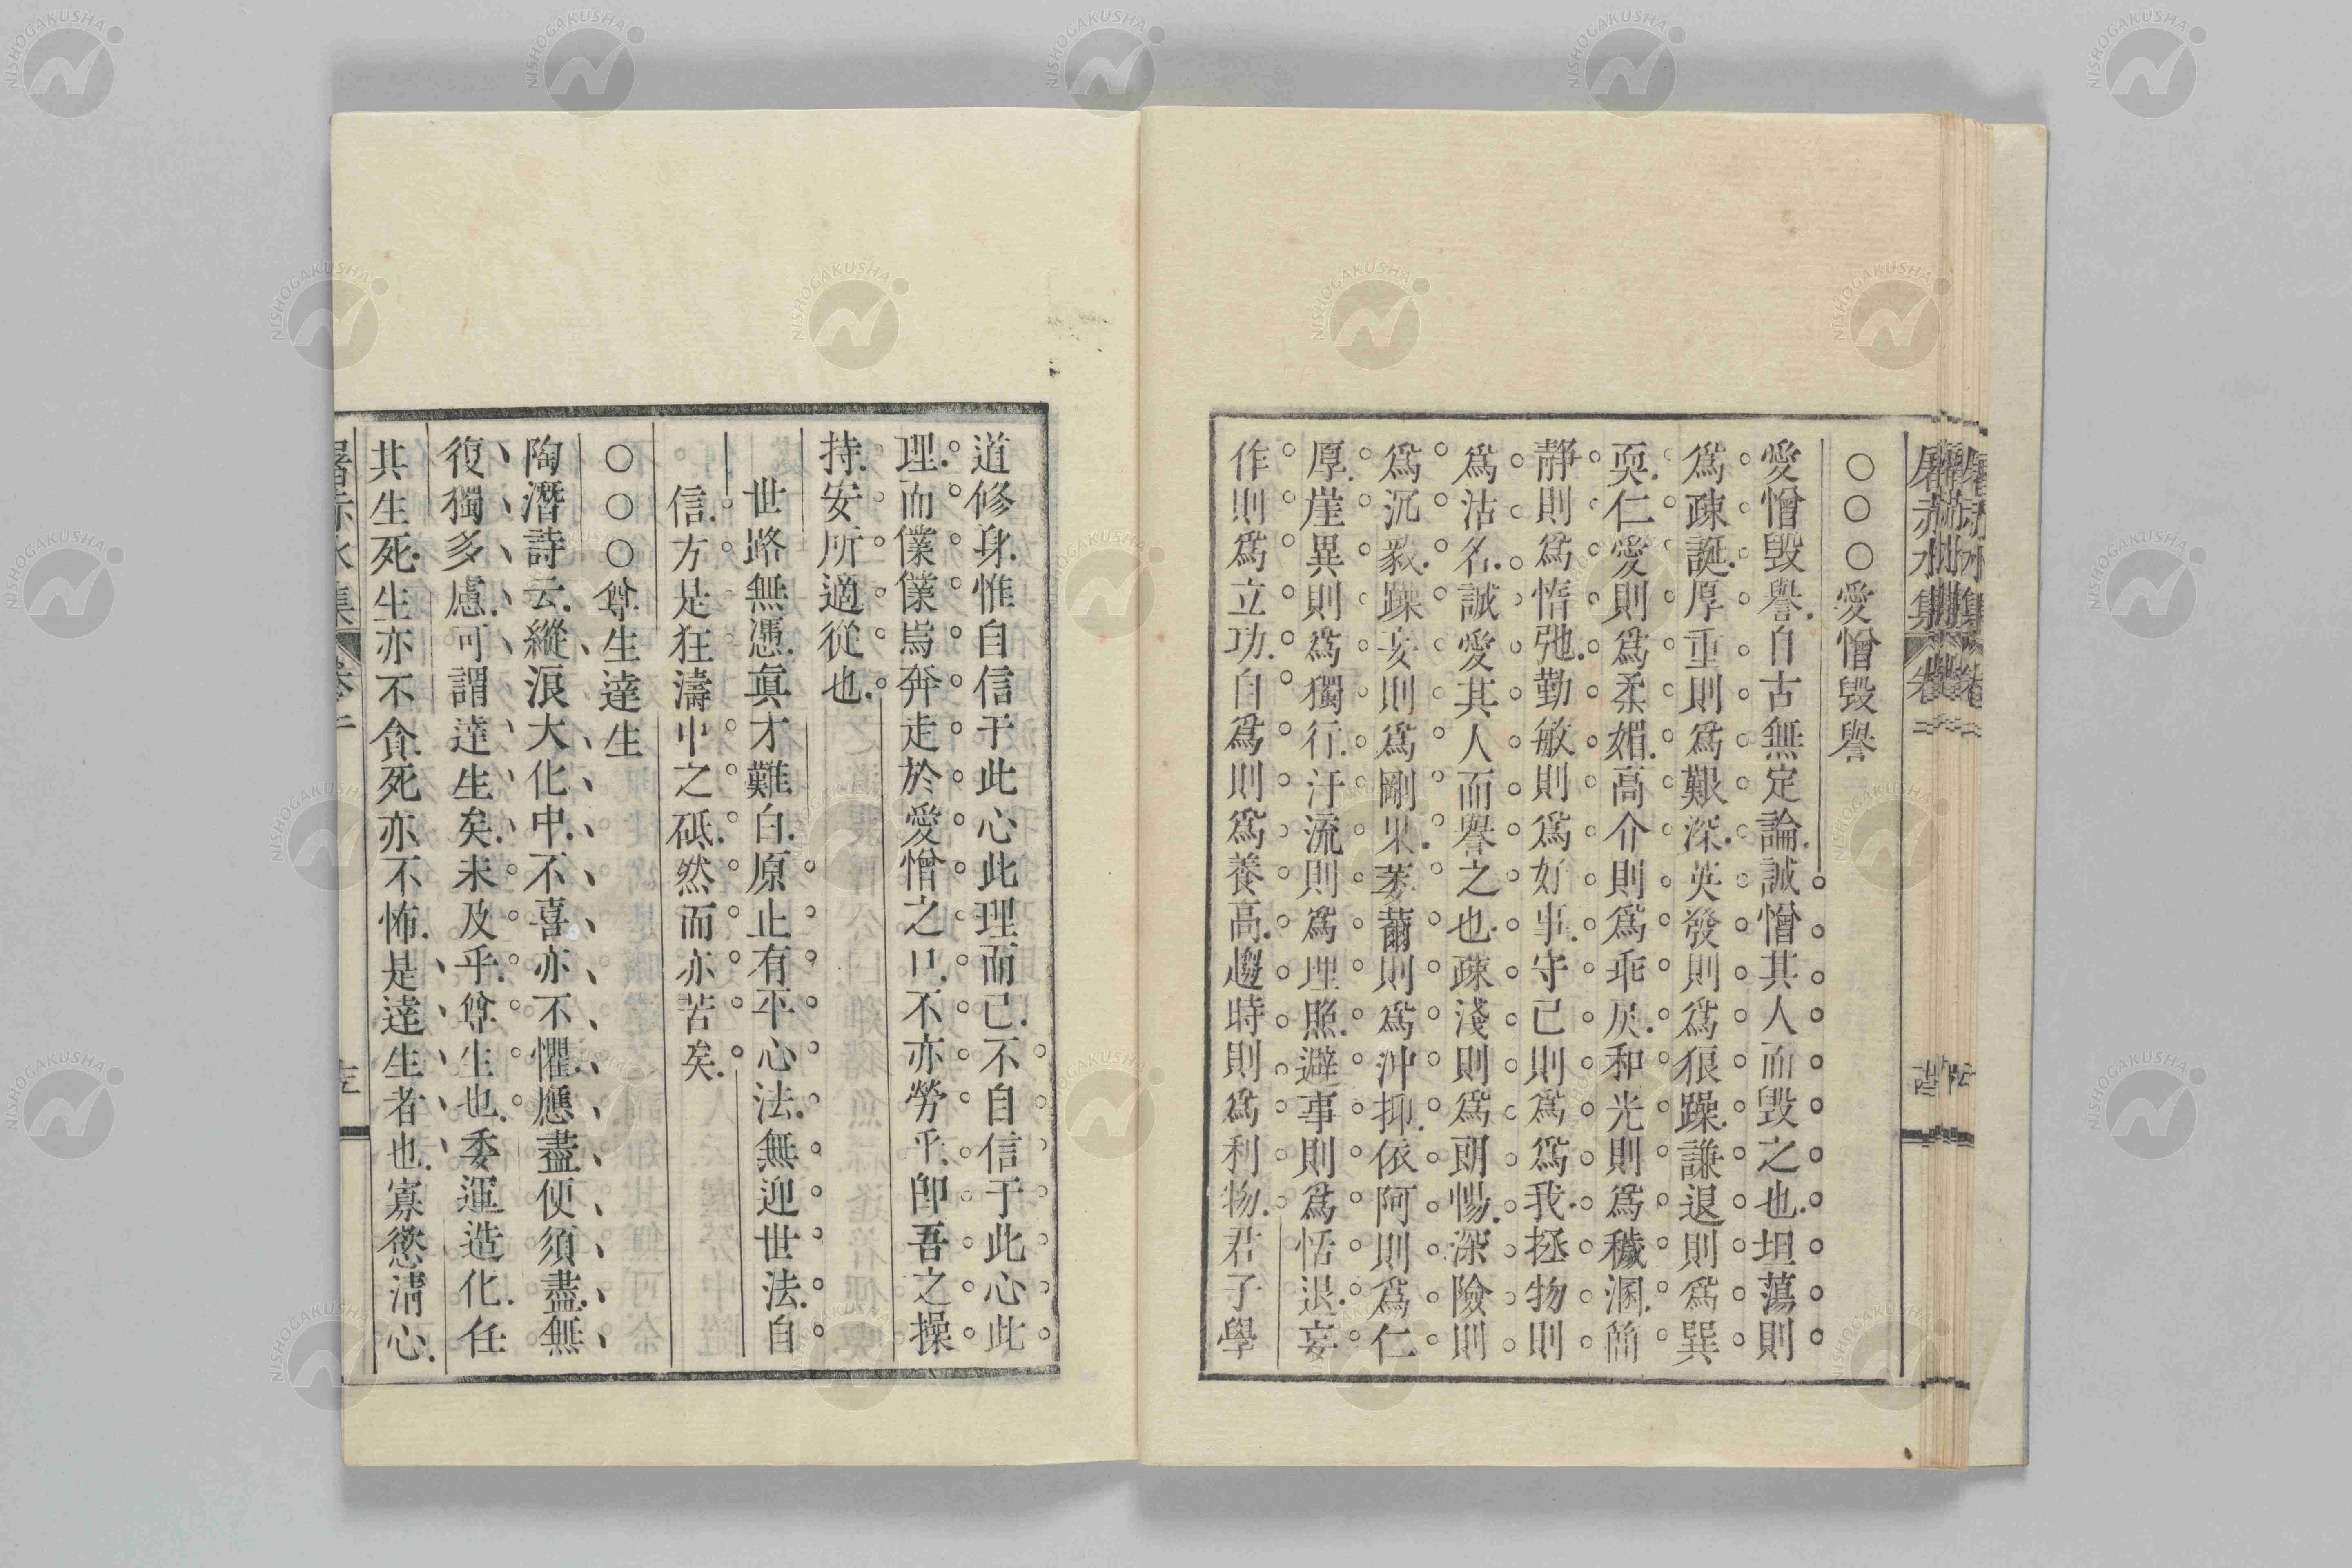 ○○○愛憎毀譽
愛憎毀譽.自古無定論.誠憎其人而毀之也.坦蕩則
爲疎誕.厚重則爲艱深.英發則爲狠躁.謙退則爲巽
耎.仁愛則爲柔媚.高介則爲乖戾.和光則爲穢溷.簡
靜則爲惰弛.勤敏則爲好事.守已則爲爲我.拯物則
爲沽名.誠愛其人而譽之也.疎淺則爲朗惕.深險則
爲沉毅.躁妄則爲剛果.萎薾則爲沖抑.依阿則爲仁
厚.崖異則爲獨行.汙流則爲理照.避事則爲恬退.妄
作則爲立功.自爲則爲養高.趨時則爲利物.君子學
道修身.惟自信于此心此理而已.不自信于此心此
理.而僕僕焉奔走於愛憎之口.不亦勞乎.卽吾之操
持.安所適從也.
世路無憑.眞才難白.原止有平心法.無迎世法.自
信.方是狂濤中之砥.然而亦苦矣.
○○○尊生達生
陶潛詩云.縱浪大化中.不喜亦不懼.應盡便須盡.無
復獨多慮.可謂達生矣.未及乎.尊生也.委運造化.任
共生死.生亦不貪.死亦不怖.是達生者也.寡慾淸心.
屠赤水集
卷二
屠赤水集
卷二
NISHOGAKUSHA